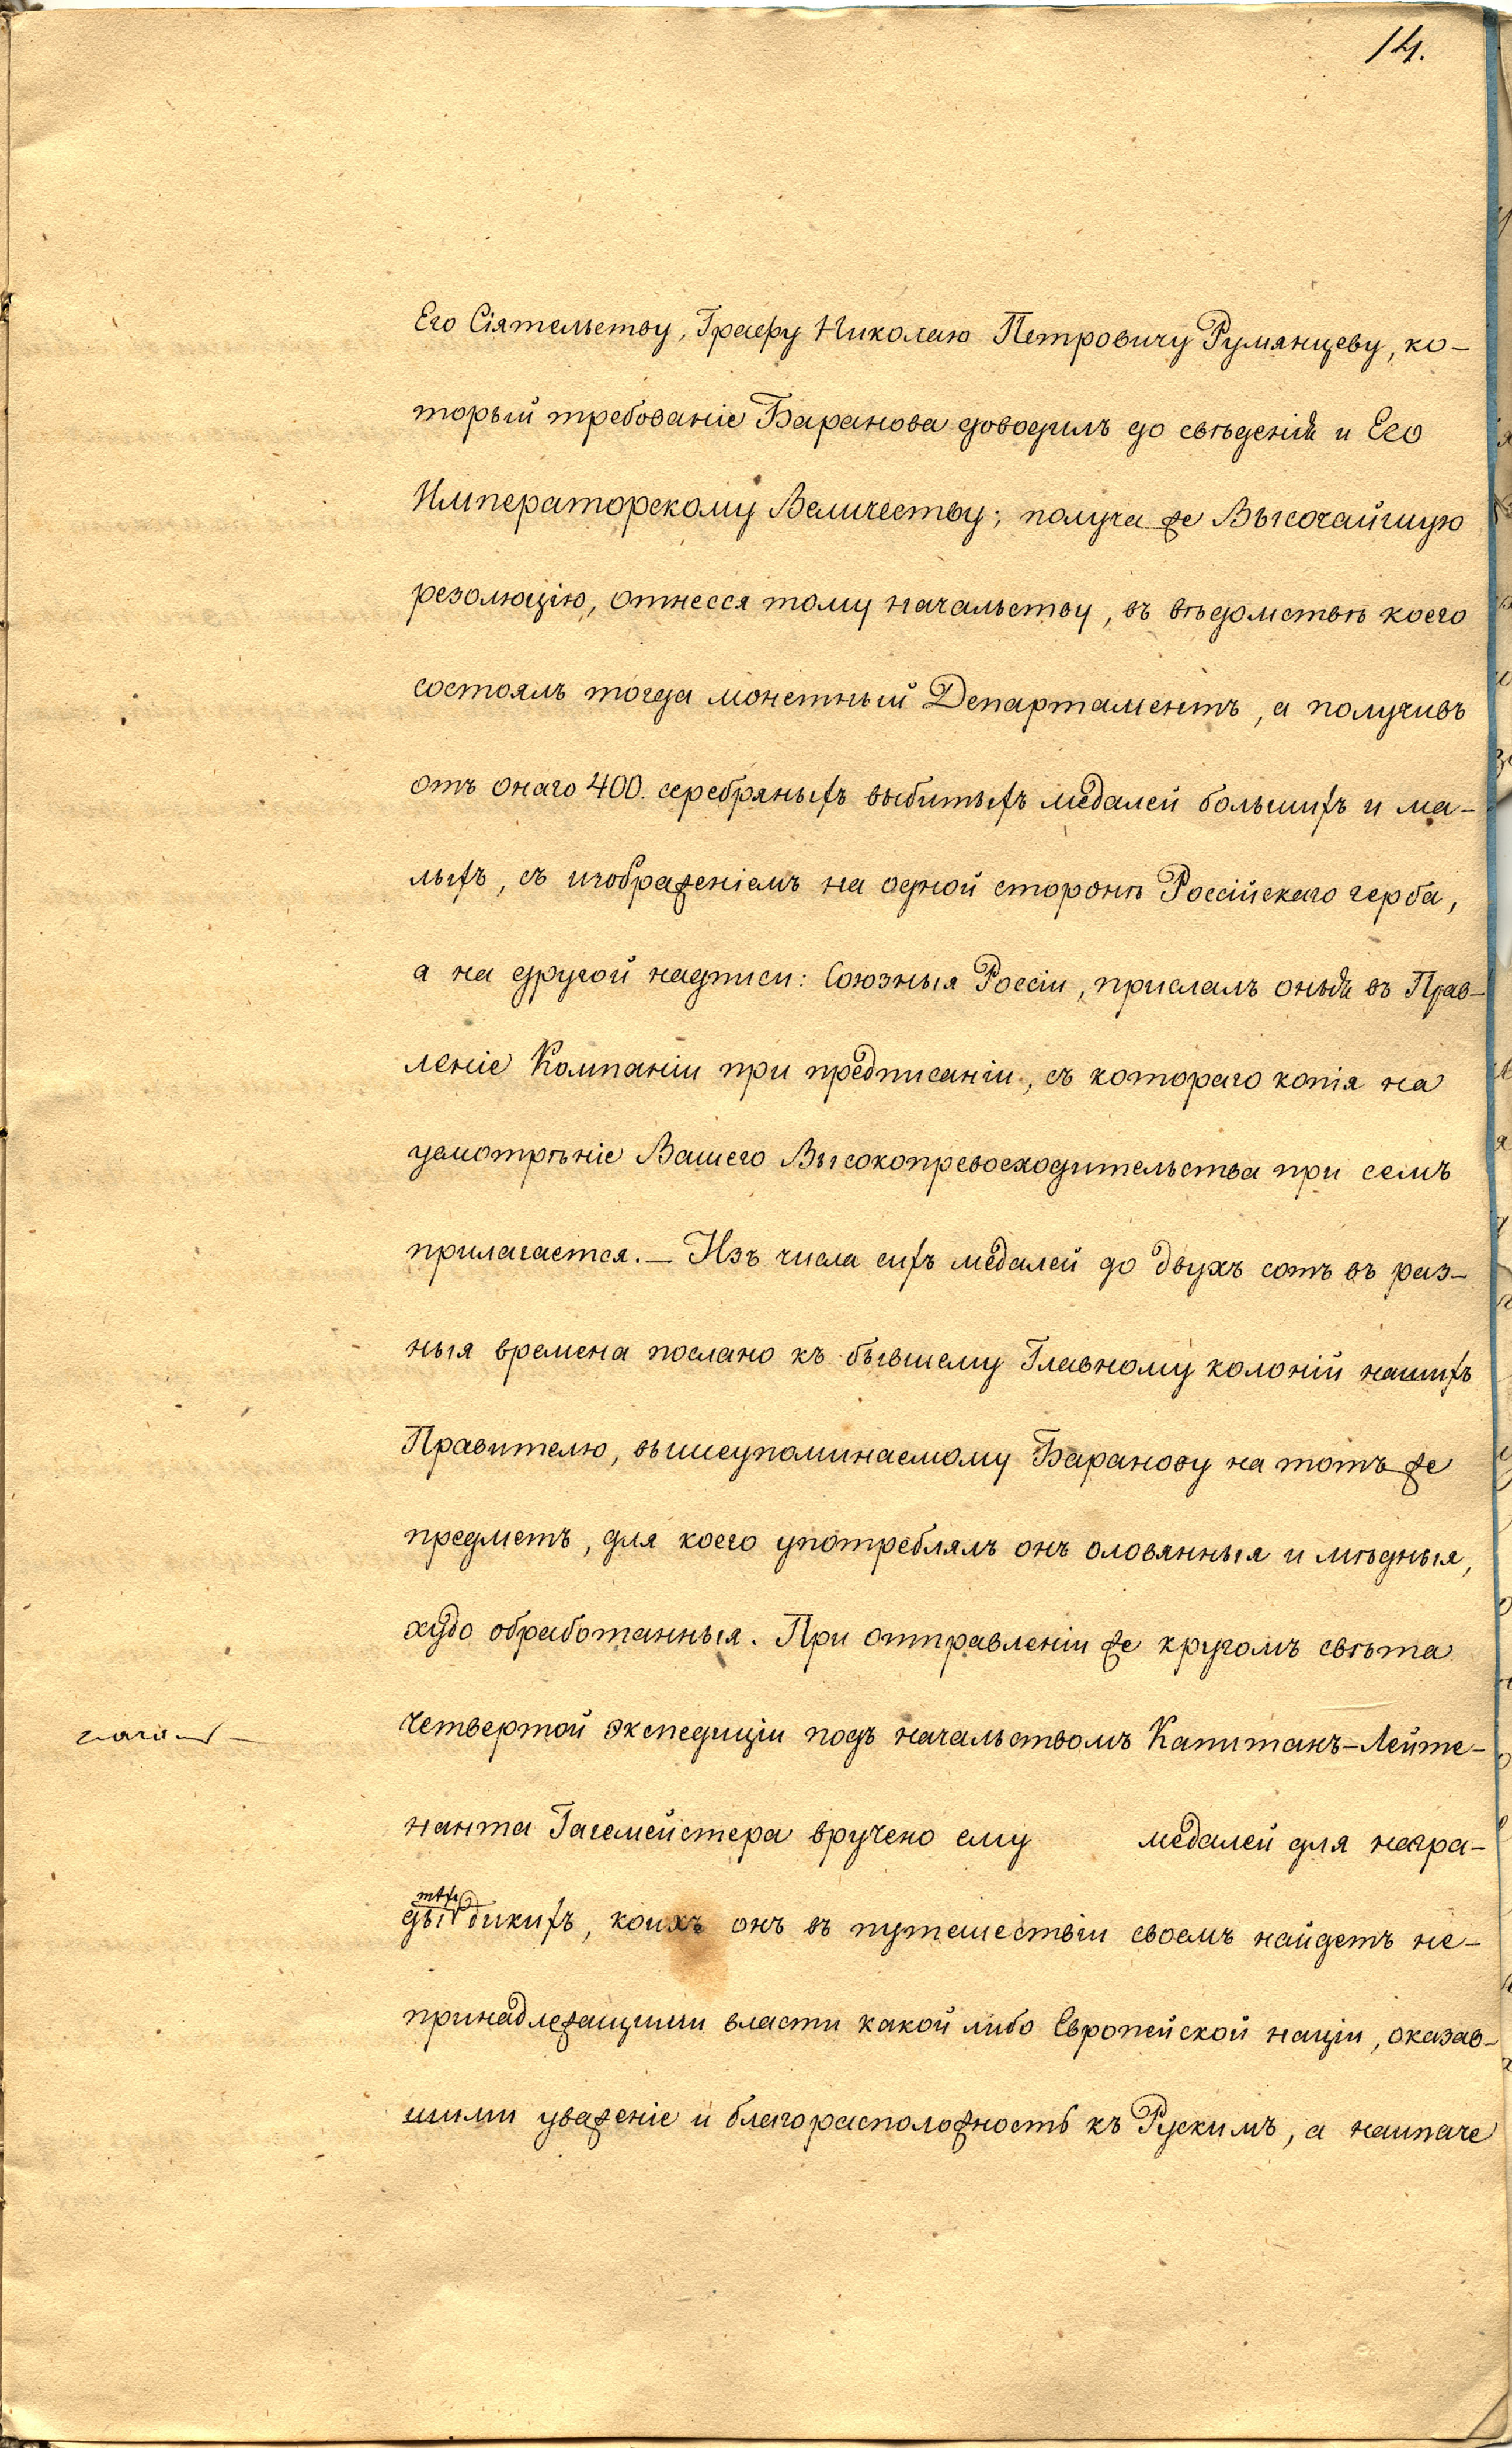 14.
Его Сіятельству, Графу Николаю Петровичу Румянцеву, ко-
торый требованіе Баранова доводилъ до свѣденія и Его
Императорскому Величеству; получа же Высочайшую
резолюцію, отнесся тому начальству, въ вѣдомствѣ коего
состоялъ тогда монетный Департаментъ, а получивъ
отъ онаго 400. серебряныхъ выбитыхъ медалей большихъ и ма-
лыхъ, съ изображеніемъ на одной сторонѣ Россійскаго герба,
а на другой надписи: Союзныя Россіи, прислалъ оныя въ Прав-
леніе Компаніи при предписаніи, съ котораго копія на
усмотрѣніе Вашего Высокопревосходительства при семъ
прилагается. — Изъ числа сихъ медалей до двухъ сотъ въ раз-
ныя времена послано къ бывшему Главному колоній нашихъ
Правителю, вышеупоминаемому Баранову на тотъ же
предметъ, для коего употреблялъ онъ оловянныя и мѣдныя,
худо обработанныя. При отправленіи же кругомъ свѣта
четвертой экспедиціи подъ начальствомъ Капитанъ-Лейте-
нанта Гагемейстера вручено ему медалей для награ-
тѣхъ
ды дикихъ, коихъ онъ въ путешествіи своемъ найдетъ не-
принадлежащими власти какой либо Европейской націи, оказав-
шими уваженіе и благорасположность къ Рускимъ, а наипаче